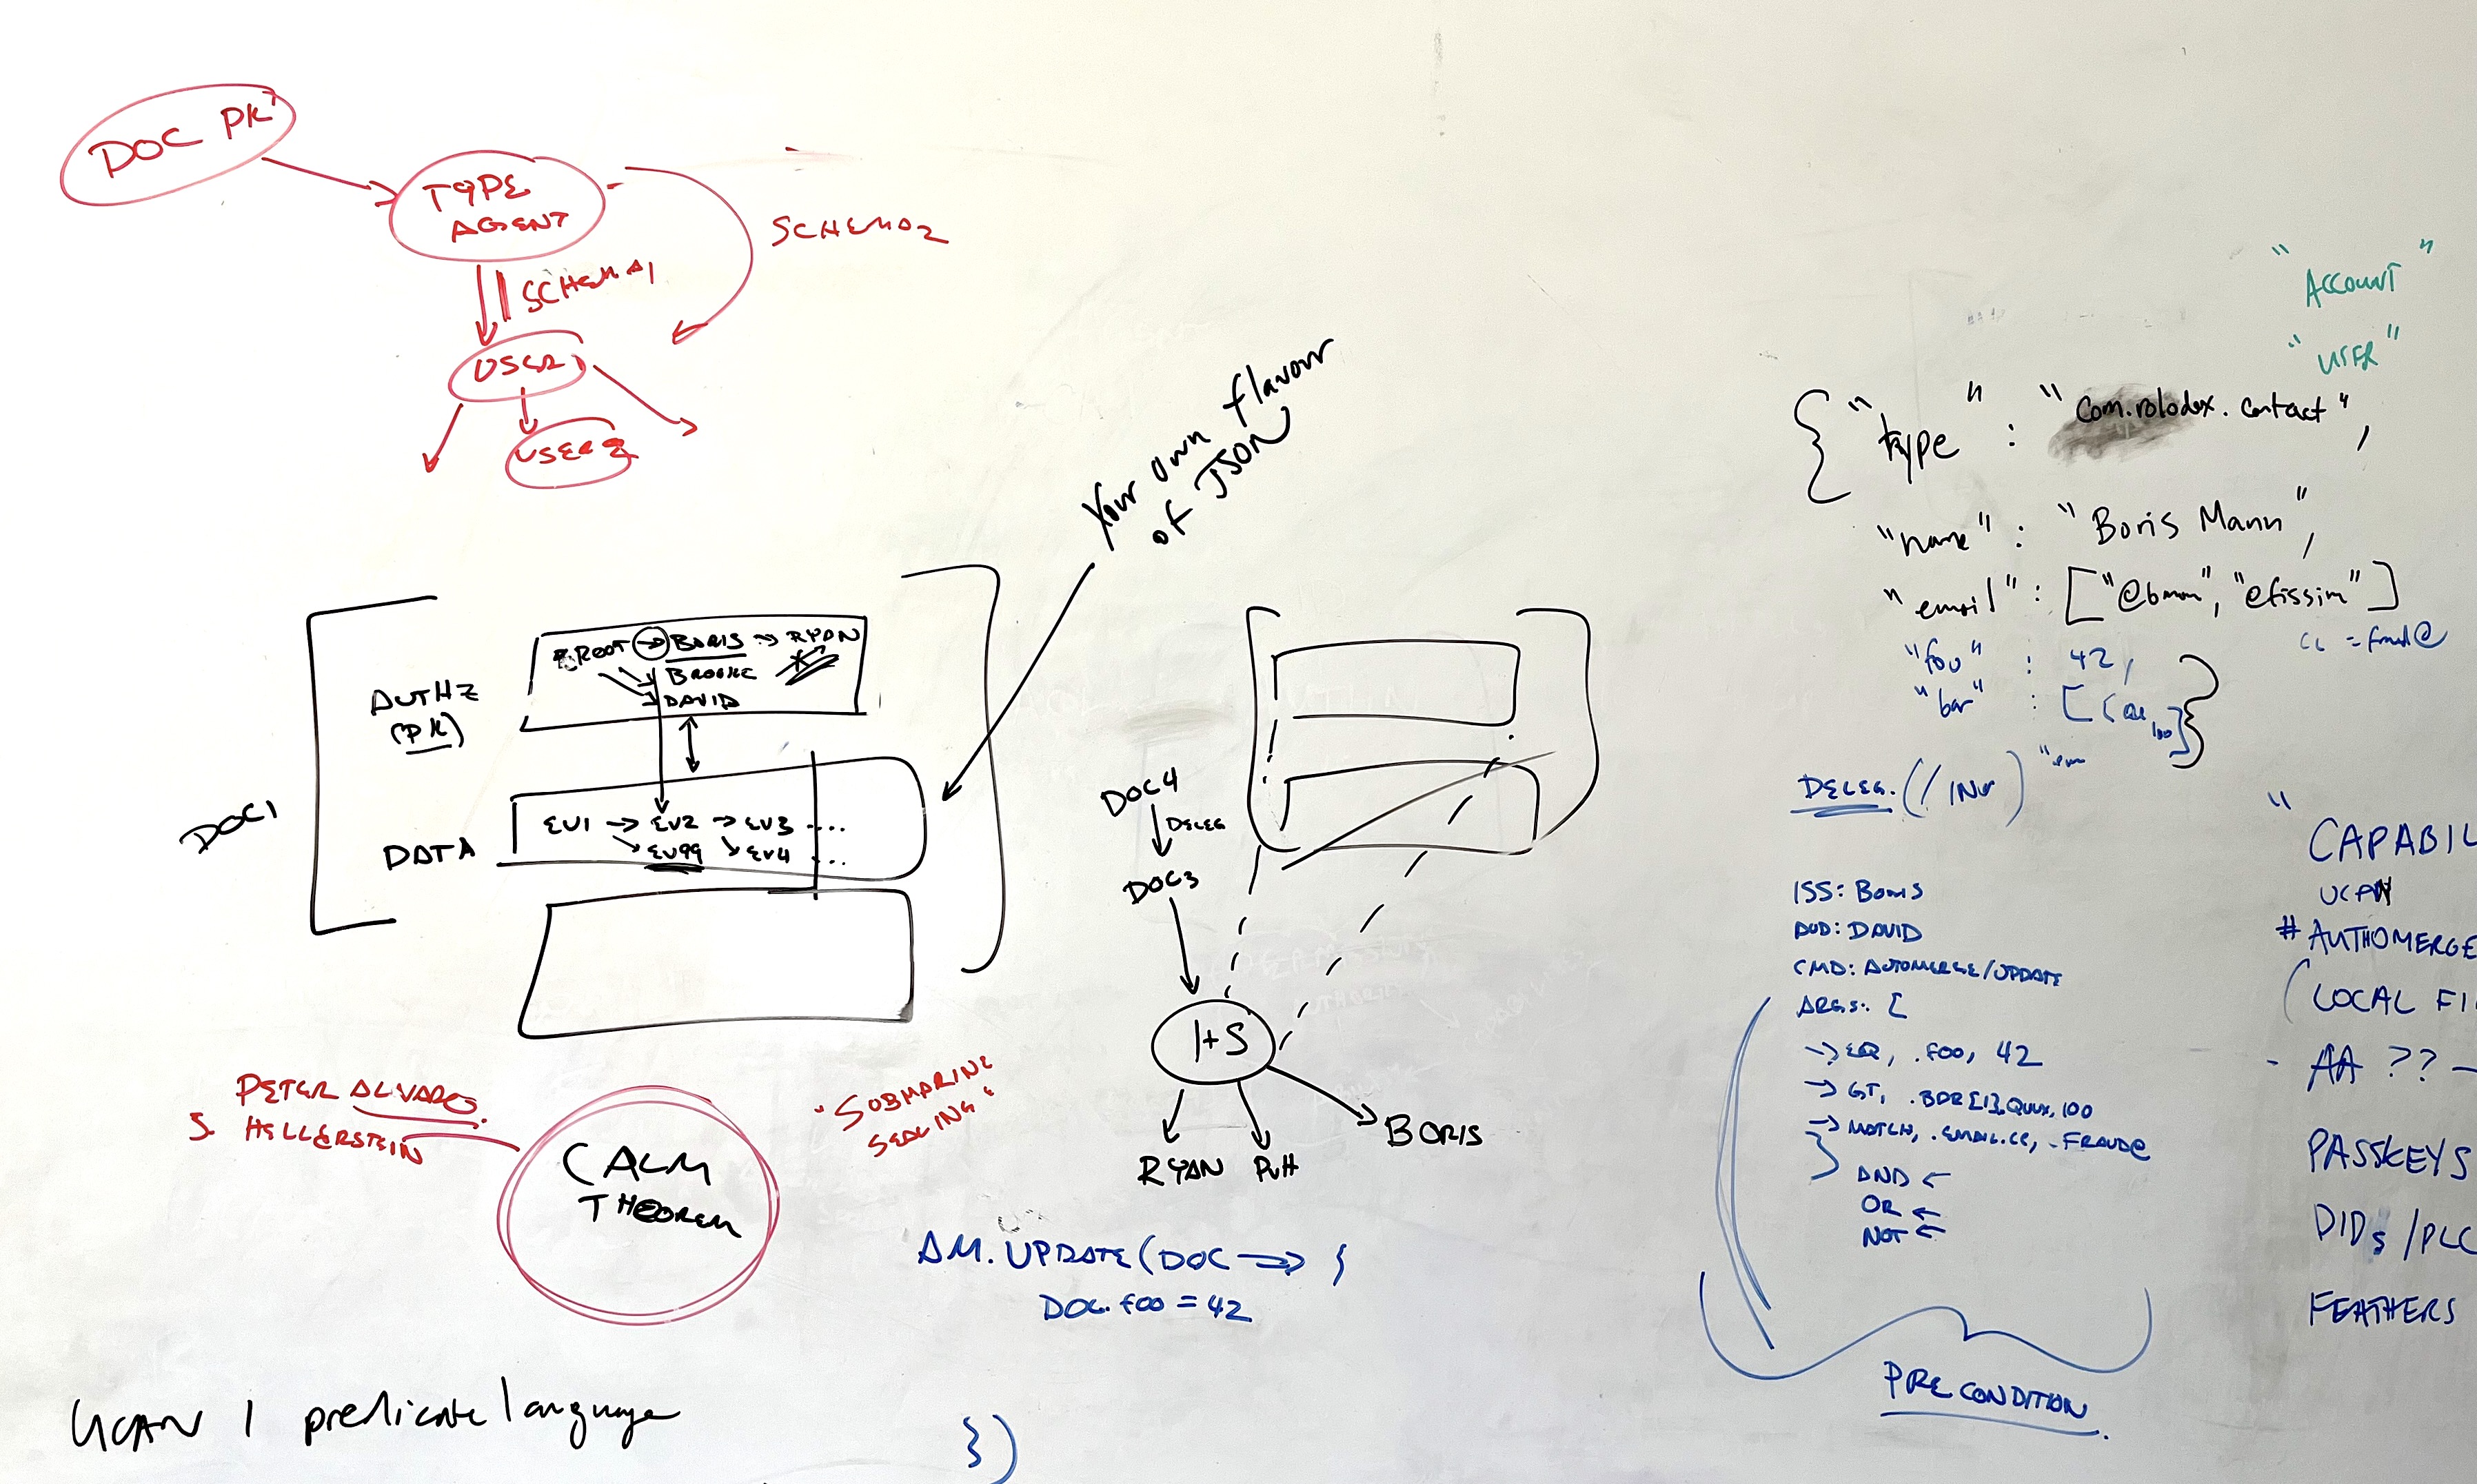 DOC PK
TYPE
AGENT
SCHEMA1
SCHEMA2
USER1
USER2
Your own flavour
of JSON
DOC1
AUTHZ
(PK)
ROOT → BORIS → RYAN
BROOKE
DAVID
DATA
EV1 → EV2 → EV3 ....
EV99 EV4 ....
DOC4
DELEG
DOC3
I+S
RYAN PVH BORIS
PETER ALVARO
J. HELLERSTEIN
CALM
THEOREM
"SUBMARINE
SEALING"
AM.UPDATE(DOC → {
DOC.foo = 42
})
UCAN 1 predicate language
"ACCOUNT"
"USER"
{ "type" : "com.rolodex.contact",
"name" : "Boris Mann",
"email" : ["@bmm", "@fissim"]
"foo" : 42,
"bar" : [
DELEG. (/INV)
ISS: BORIS
AUD: DAVID
CMD: AUTOMERGE/UPDATE
ARGS: [
→ EQ, .FOO, 42
→ GT, .BAR[1].QUUX, 100
→ MATCH, .EMAIL.CC, .FRAUD@
AND ←
OR ←
NOT ←
PRECONDITION.
"
CAPABIL
UCAN
# AUTHOMERGE
(LOCAL FI
- AA ?? -
PASSKEYS
DIDs /PLC
FEATHERS